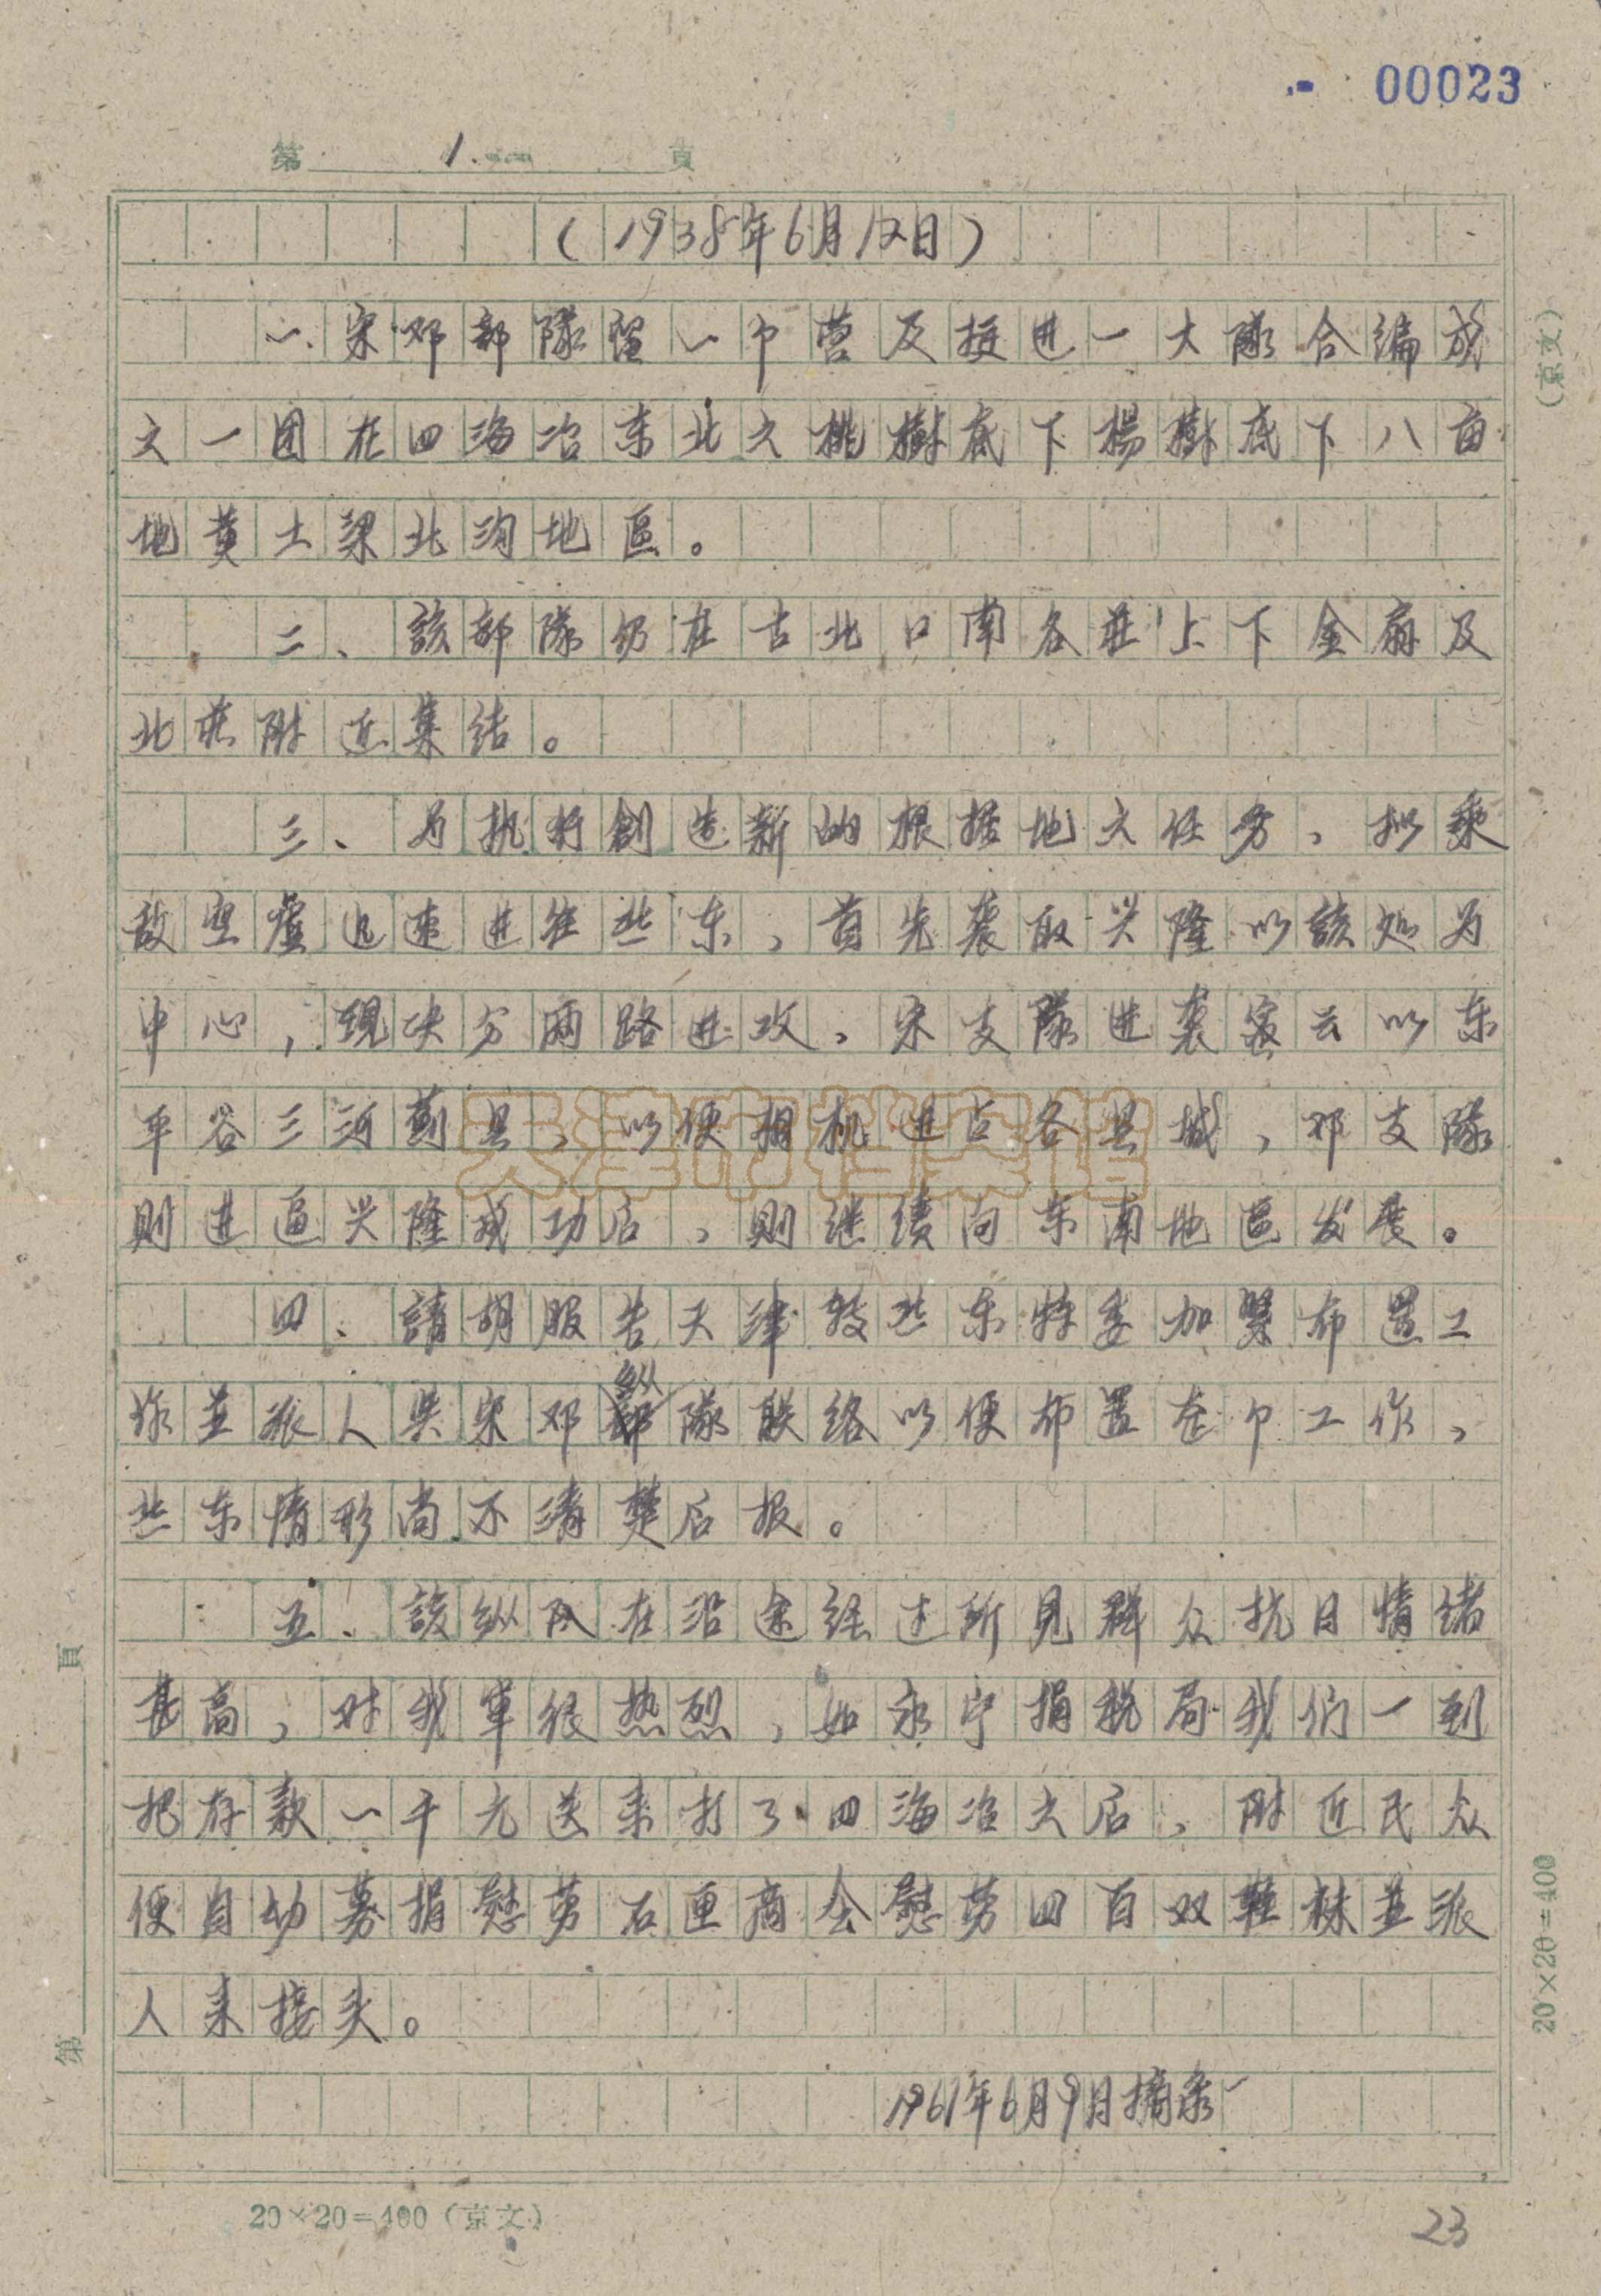 00023
第 1. 頁
（1938年6月12日）
一、宋邓部隊留一个营及挺进一大隊合編成
之一团在四海冶东北之桃樹底下楊樹底下八亩
地黄土梁北沟地區。
二、該部隊仍在古北口南各莊上下金扇及
北莊附近集結。
三、为执行創造新的根据地之任务，拟乘
敌空虚迅速进往冀东，首先袭取兴隆以該处为
中心，现决分兩路进攻，宋支隊进袭密云以东
平谷三河薊县，以便相机进占各县城，邓支隊
則进逼兴隆成功后，則继续向东南地區发展。
四、請胡服告天津转冀东特委加緊布置工
作並派人共宋邓纵隊联络以便布置在个工作，
冀东情形尚不清楚后报。
五、該纵队在沿途经过所見群众抗日情绪
甚高，对我軍很热烈，如永宁捐税局我们一到
把存款一千元送来打了四海冶之后，附近民众
便自动募捐慰劳石匣商会慰劳四百双鞋袜並派
人来接头。
1961年6月9日摘录
20×20=400（京文）
23
（京文）
20×20=400
第 頁
天津市档案馆